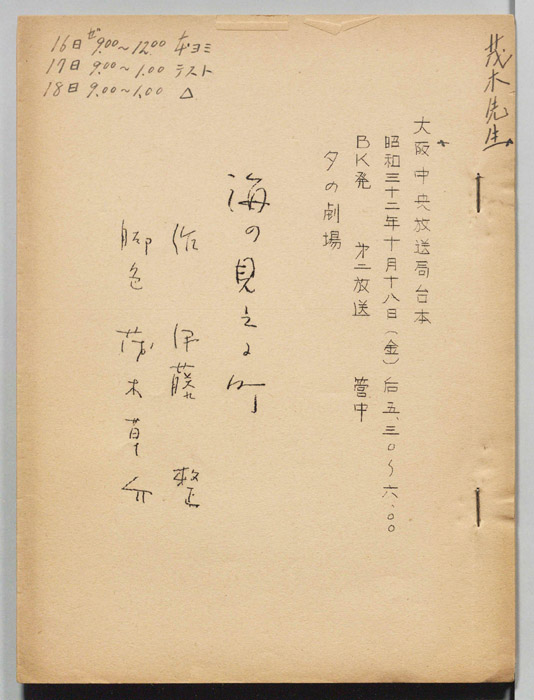 16日 ゼ9.00~12.00 本ヨミ
17日 9.00~1.00 テスト
18日 9.00~1.00 △
茂木先生
大阪中央放送局台本
昭和三十二年十月十八日(金)后五.三〇~六.〇〇
BK発 第二放送 管中
夕の劇場
海の見える町
作 伊藤整
脚色 茂木草介